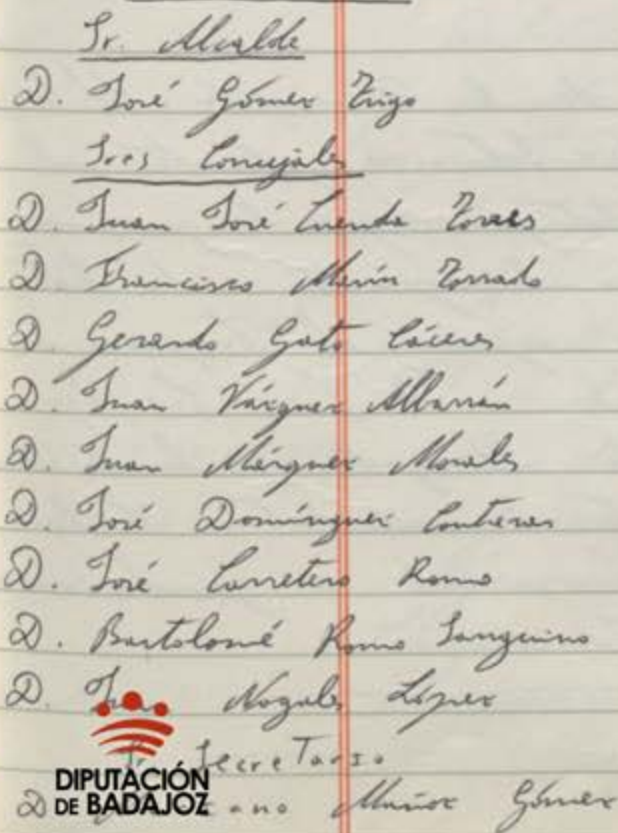 Sr. Alcalde
D. José Gómez Trigo
Sres Concejales
D. Juan José Cuenda Torres
D. Francisco Marín Torrado
D. Gerardo Gato Cáceres
D. Juan Vázquez Albarrán
D. Juan Márquez Morales
D. José Domínguez Contreras
D. José Carretero Romo
D. Bartolomé Romo Sanguino
D. Nogales López
Secretario
DIPUTACIÓN
DE BADAJOZ
D Muñoz Gómez